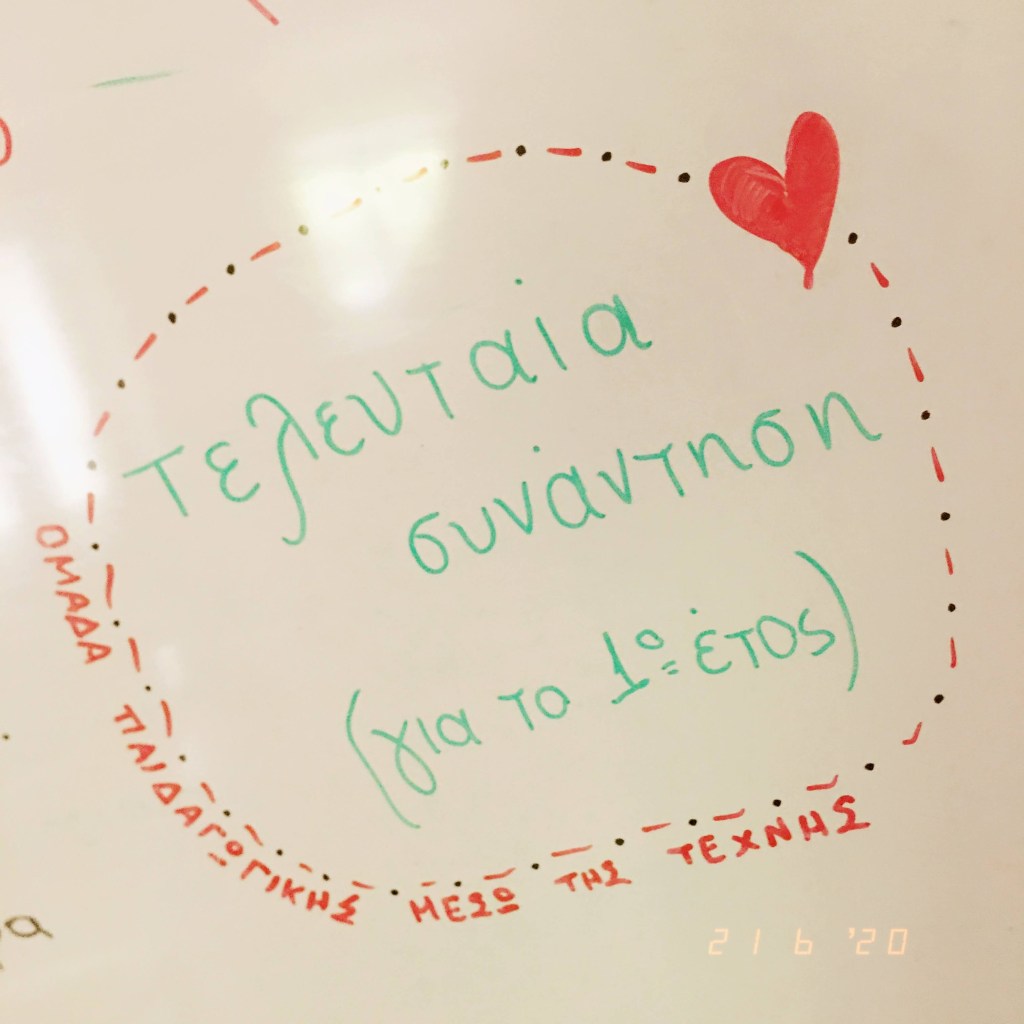 τελευταία
συνάντηση
(για το 1º έτος)
ΟΜΑΔΑ ΠΑΙΔΑΓΩΓΙΚΗΣ ΜΕΣΩ ΤΗΣ ΤΕΧΝΗΣ
21 6 '20